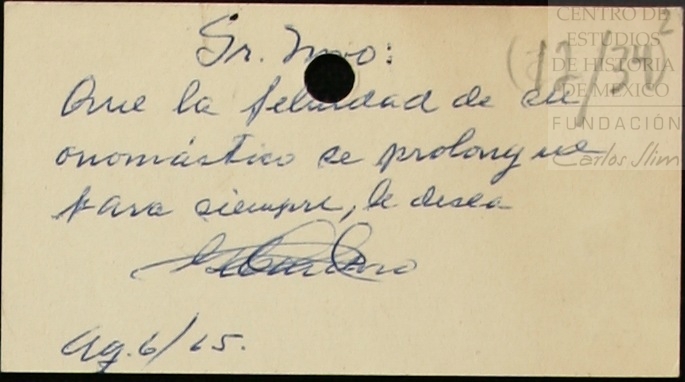 Sr.
(12/34)²
Que la felicidad de su
onomástico se prolongue
para siempre, le desea
Ag. 6/65.
CENTRO DE
ESTUDIOS
DE HISTORIA
DE MÉXICO
FUNDACIÓN
Carlos Slim